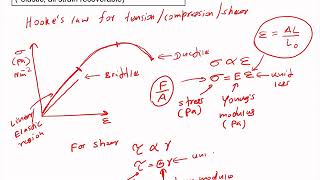 (elastic, all strain recoverable)
Hooke's law for tension/compression/shear
σ
(Pa)
N/m²
Ductile
Brittle
Linear
Elastic
region
ε
σ ∝ ε
ε = ΔL/L₀
F/A
σ = E ε
unit
less
stress
(Pa)
Young's
modulus
(Pa)
For shear τ ∝ γ
τ = Gγ